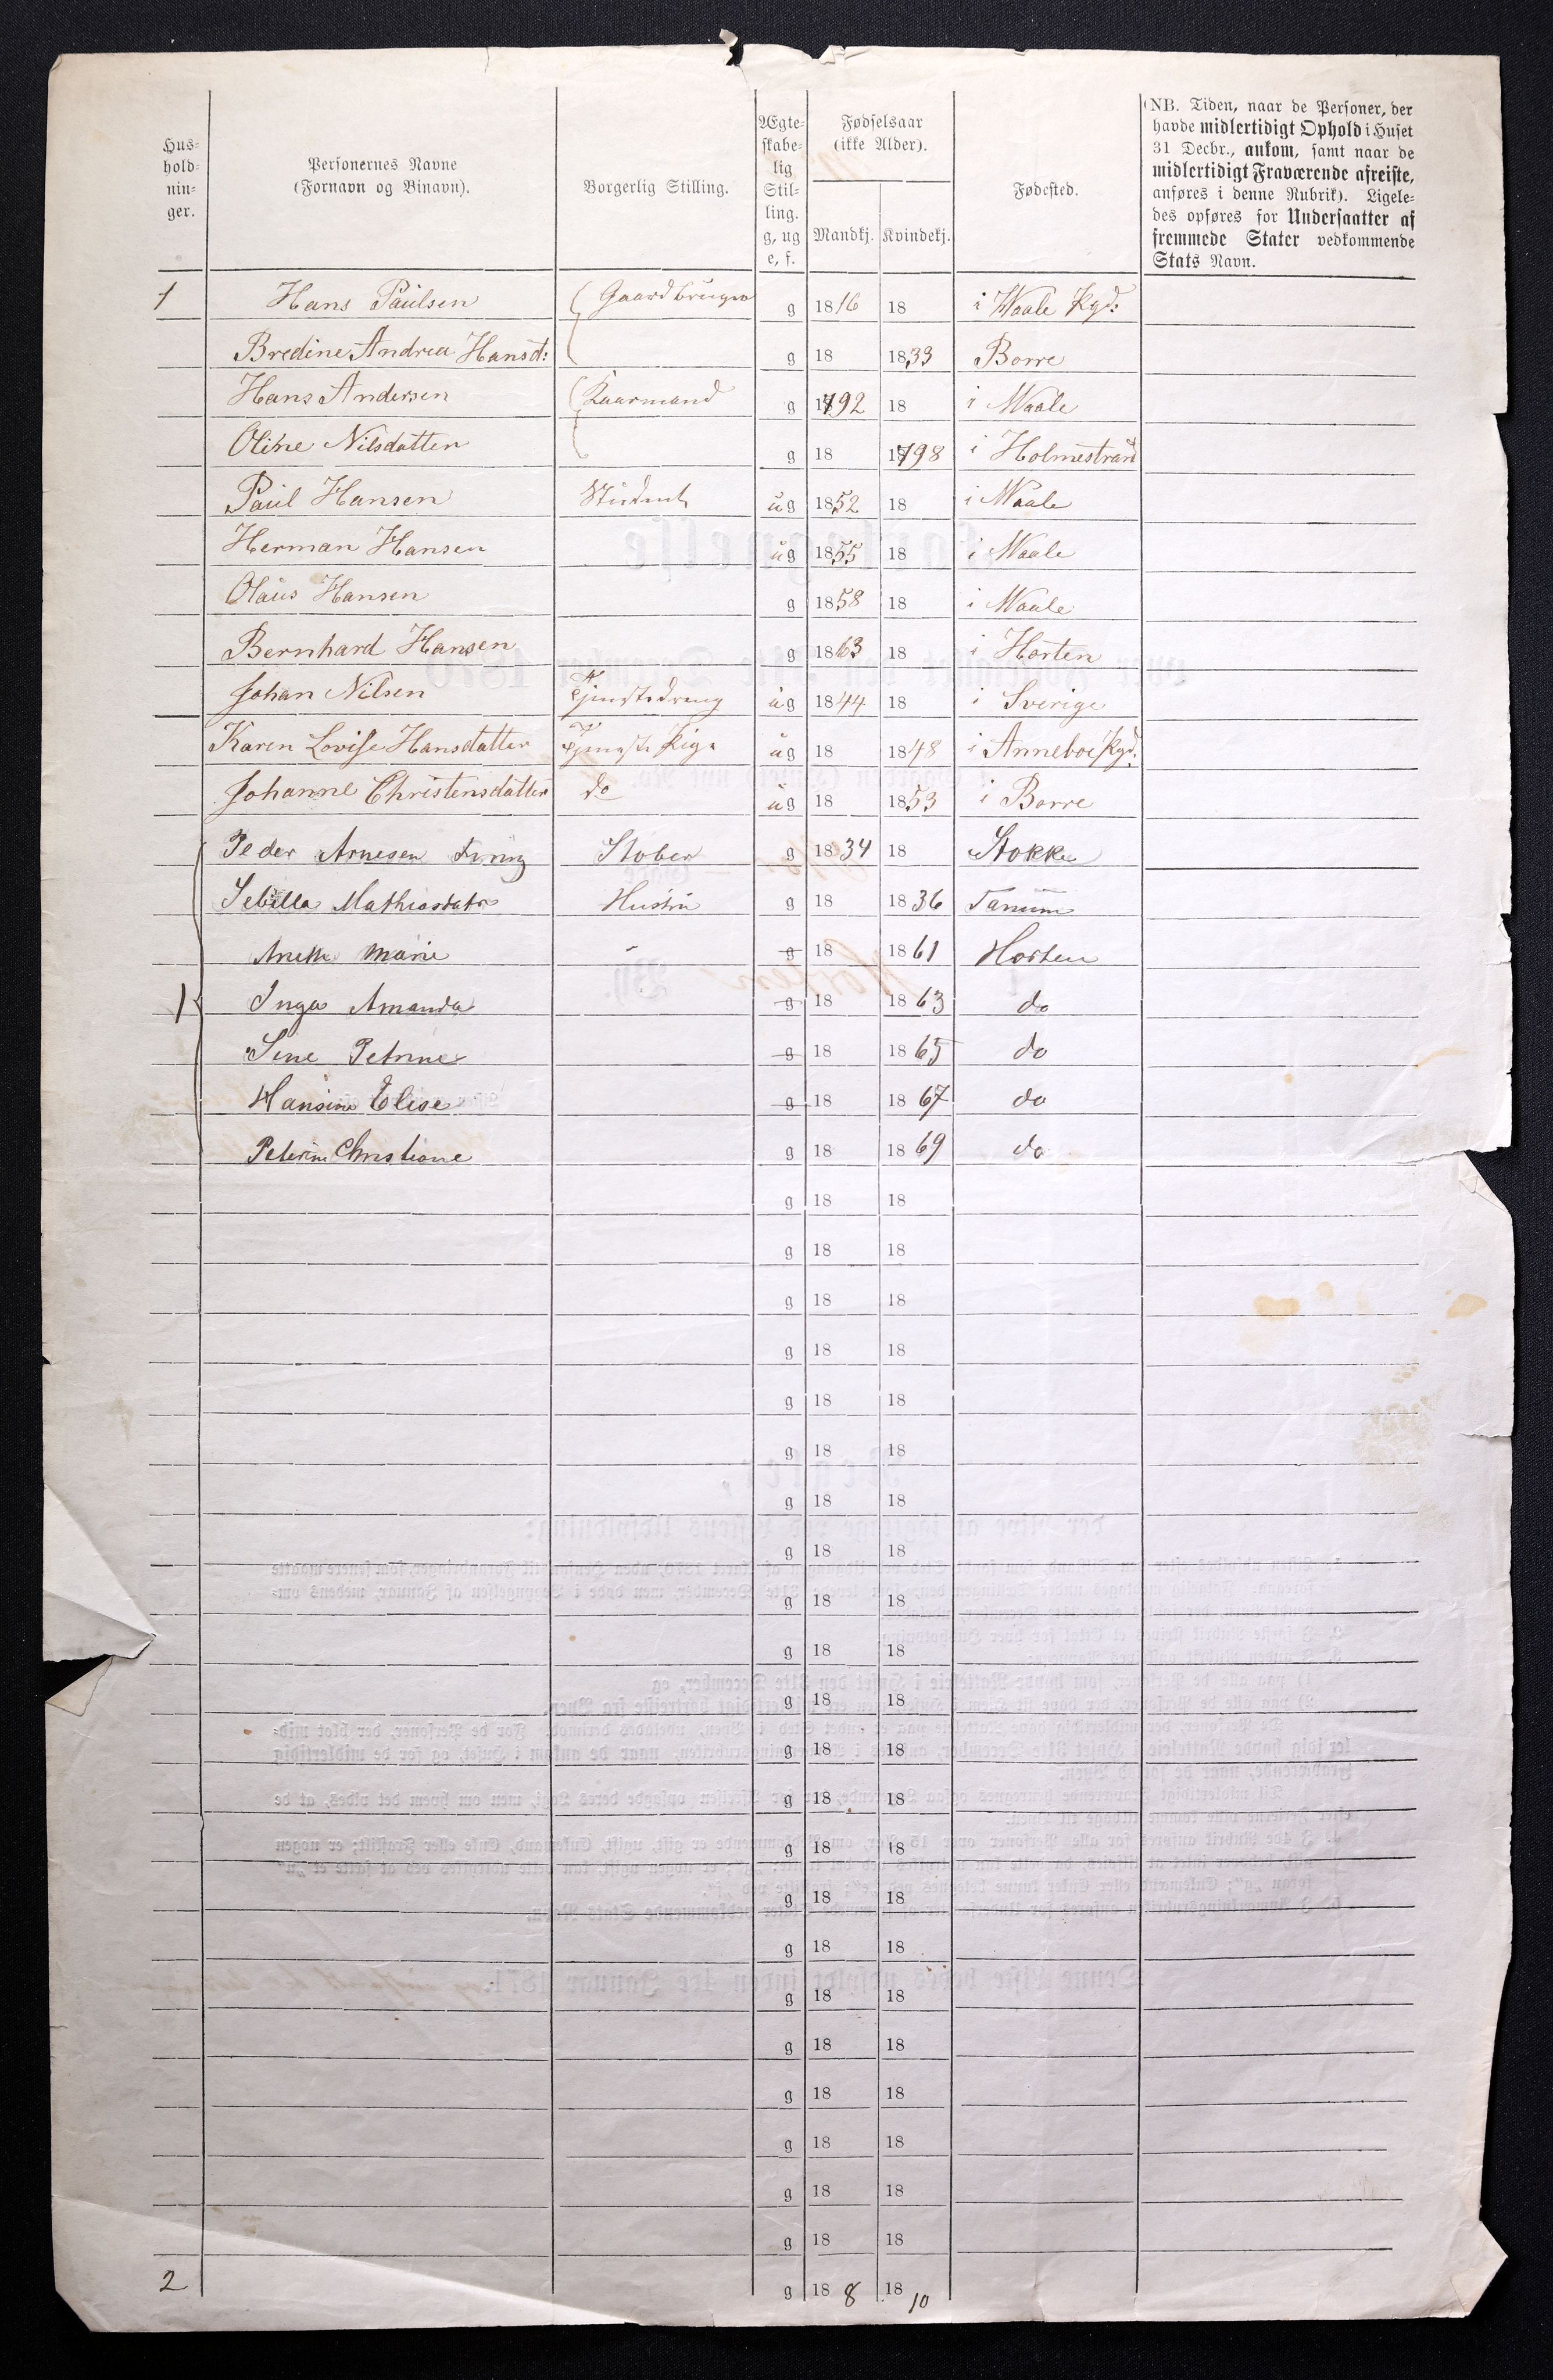 Hus-
hold-
nin-
ger.
Personernes Navne
(Fornavn og Binavn).
Borgerlig Stilling.
Ægte-
skabe-
lig
Stil-
ling.
g, ug
e, f.
Fødselsaar
(ikke Alder).
Mandkj. Kvindekj.
Fødested.
(NB. Tiden, naar de Personer, der
havde midlertidigt Ophold i Huset
31 Decbr., ankom, samt naar de
midlertidigt Fraværende afreiste,
anføres i denne Rubrik). Ligele-
des opføres for Undersaatter af
fremmede Stater vedkommende
Stats Navn.
1 Hans Paulsen Gaardbruger g 1816 18 i Waale Pgd:
Bredine Andrea Hansd: g 18 1833 Borre
Hans Andersen Kaarmand g 1792 18 i Waale
Oline Nilsdatter g 18 1798 i Holmestrand
Paul Hansen Student ug 1852 18 i Waale
Herman Hansen ug 1855 18 i Waale
Olaus Hansen g 1858 18 i Waale
Bernhard Hansen g 1863 18 i Horten
Johan Nilsen Tjenstedreng ug 1844 18 i Sverige
Karen Lovise Hansdatter Tjeneste Pige ug 18 1848 i Anneboe Pgd:
Johanne Christensdatter do ug 18 1853 i Borre
Peder Arnesen Støber g 1834 18 Stokke
Sebilla Mathiasdatr Hustru g 18 1836 Tanum
Anette Marie - g 18 1861 Horten
1 Inga Amanda g 18 1863 do
Sine Petrine g 18 1865 do
Hansine Elise g 18 1867 do
Peterine Christiane g 18 1869 do
g 18 18
g 18 18
g 18 18
g 18 18
g 18 18
g 18 18
g 18 18
g 18 18
g 18 18
g 18 18
g 18 18
g 18 18
g 18 18
g 18 18
g 18 18
g 18 18
g 18 18
g 18 18
g 18 18
g 18 18
g 18 18
g 18 18
2 g 18 8 18 10